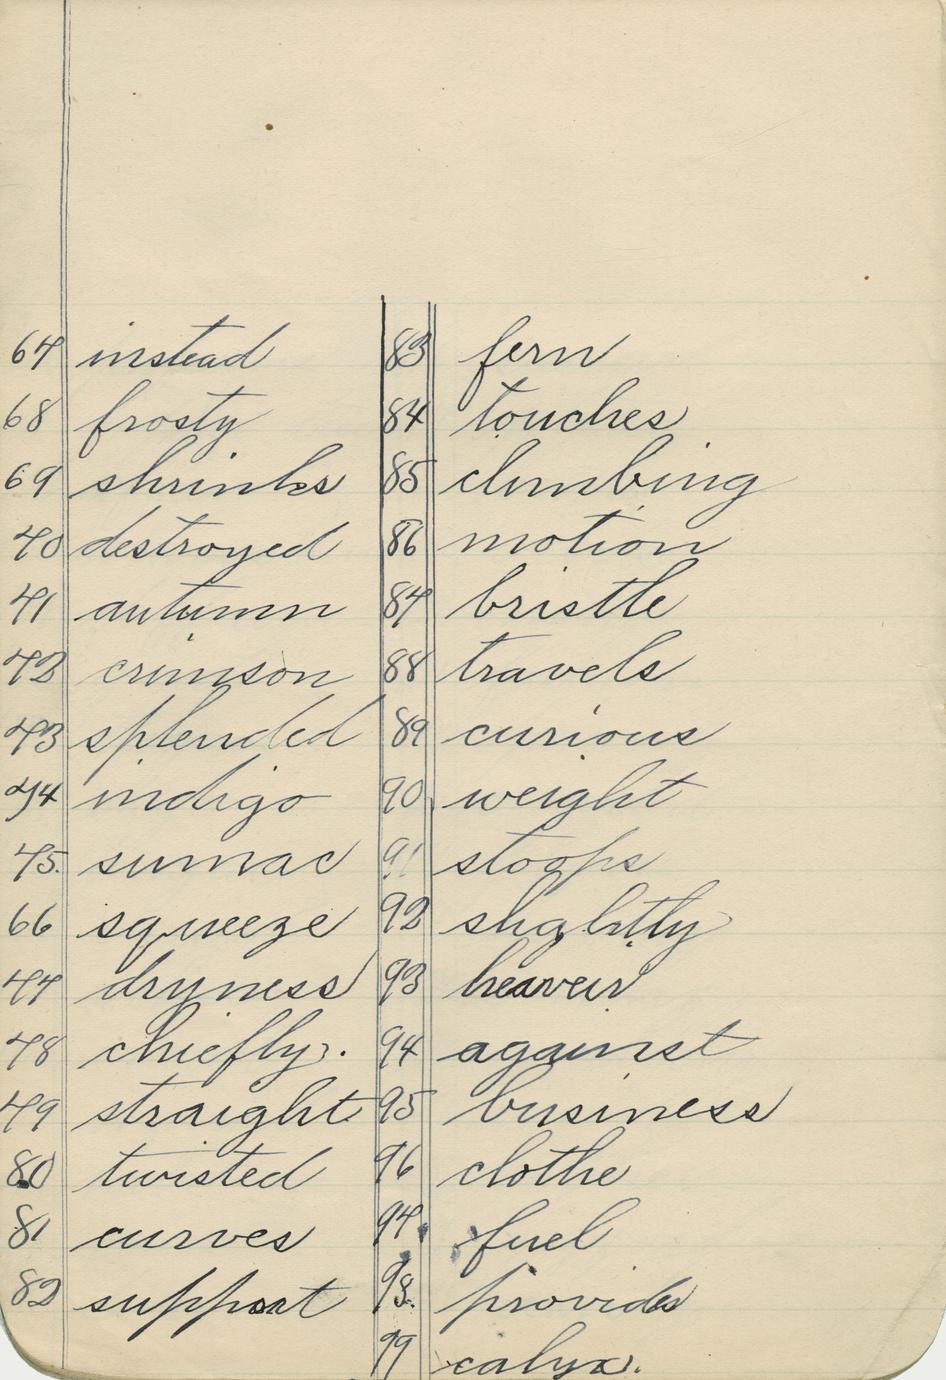 67 instead
68 frosty
69 shrinks
70 destroyed
71 autumn
72 crimson
73 splended
74 indigo
75. sumac
66 squeeze
77 dryness
78 chiefly.
79 straight
80 twisted
81 curves
82 support
83 fern
84 touches
85 climbing
86 motion
87 bristle
88 travels
89 curious
90 weight
91 stoops
92 slightly
93 heaven
94 against
95 business
96 clothe
97. fuel
98. provides
99 calyx.